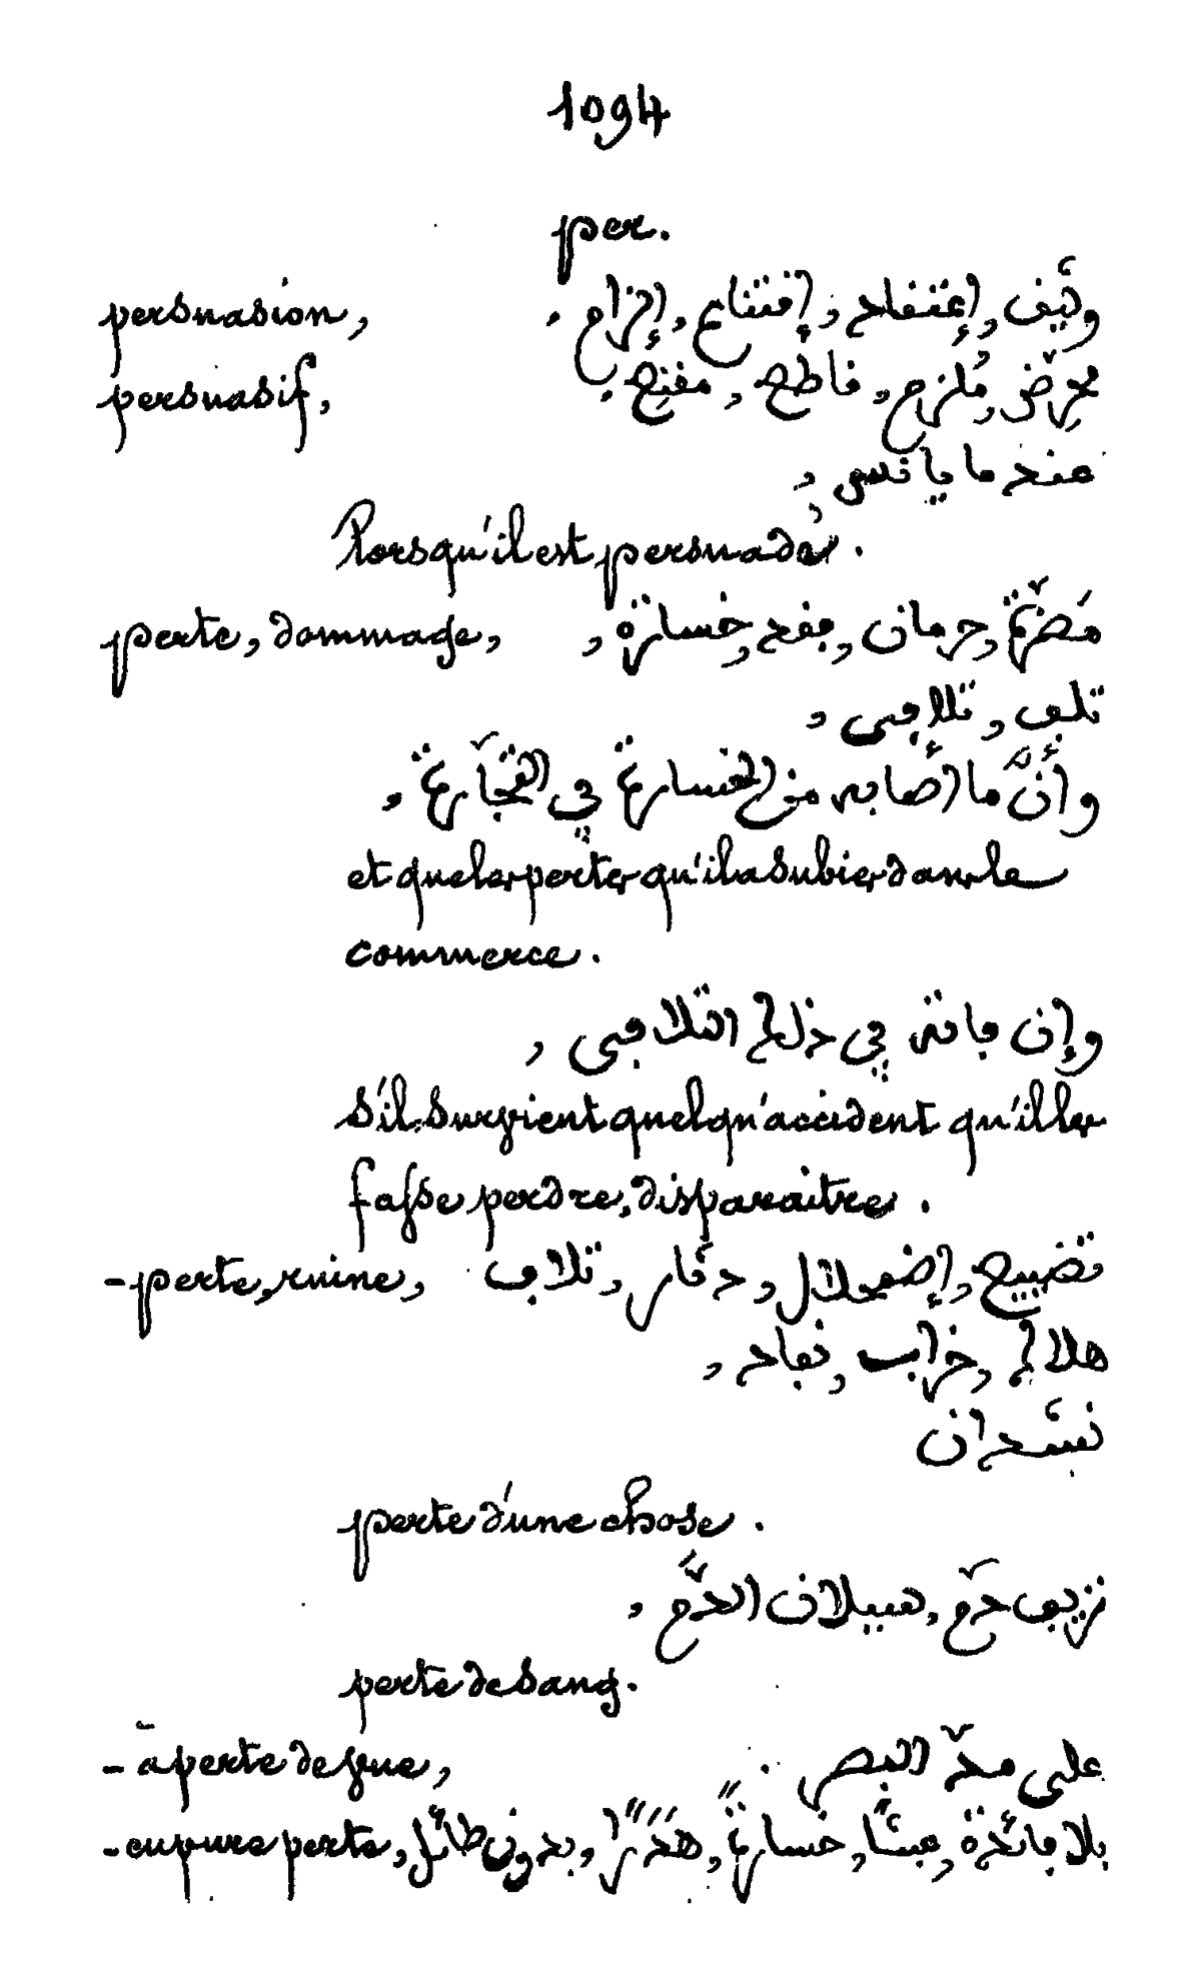 1094
per.
persuasion, وثيق, إعتقاد, إقتناع, إلزام,
persuasif, محرّض, مُلزم, قاطع, مقنِع,
عند ما يأنس,
lorsqu'il est persuadé.
perte, dommage, مَضرّة, حرمان, فقد, خسارة,
تلف, تلافى,
وأنَّ ما أصابه من الخسارة في التّجارة,
et que les pertes qu'il a subies dans le
commerce.
وإن فاته في ذلك التلافى,
S'il survient quelqu'accident qu'il les
fasse perdre, disparaitre.
- perte, ruine, تضييع, إضمحلال, دمار, تلاف
هلاك, خراب, نفاد,
نشدان
perte d'une chose.
نزيف دم, سيلان الدّم,
perte de sang.
- à perte de vue, على مدّ البصر.
- en pure perte, بلا فائدة, عبثًا, خسارةً, هَدَرًا, بدون طائل,